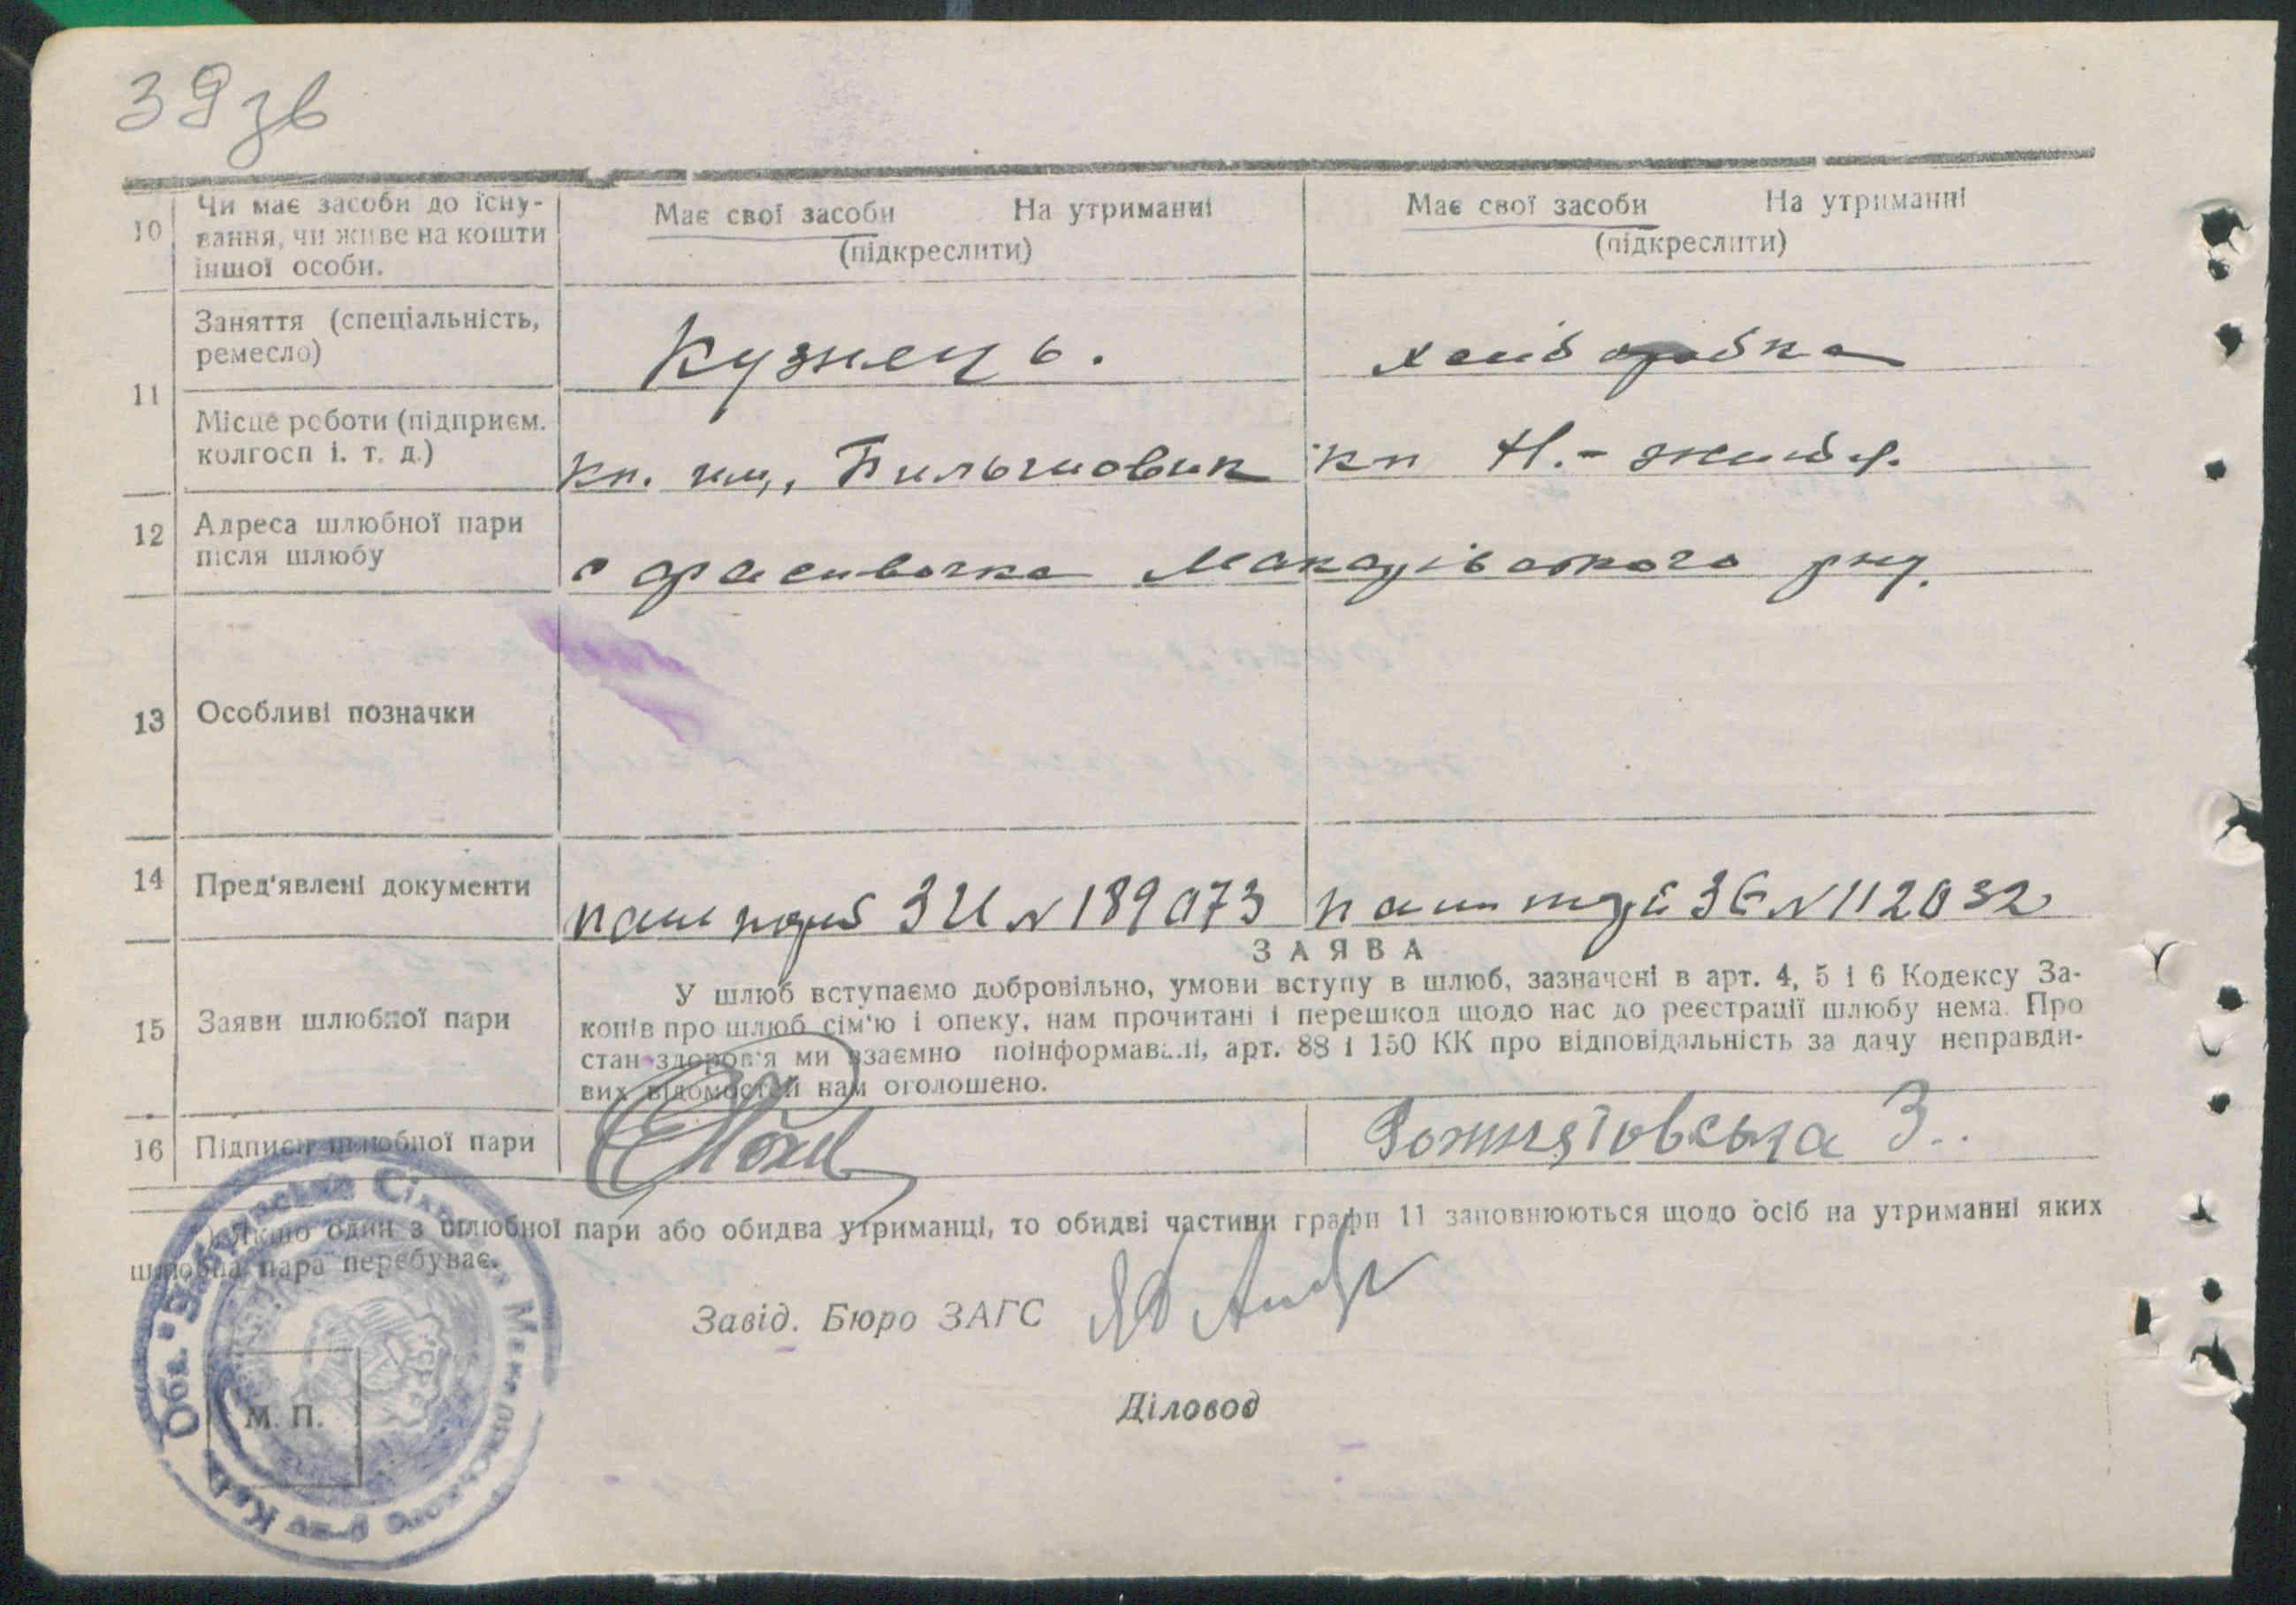 39 зв
10 Чи має засоби до існу-
вання, чи живе на кошти
іншої особи.
Має свої засоби На утриманні
(підкреслити)
Має свої засоби На утриманні
(підкреслити)
11 Заняття (спеціальність,
ремесло)
Кузнець.
Місце роботи (підприєм.
колгосп і. т. д.)
кп.
кп Н.-
12 Адреса шлюбної пари
після шлюбу
Макарівського рну.
13 Особливі позначки
14 Пред'явлені документи
пашпорт ЗИ № 189073
пашпорт ЗЄ № 112032
15 Заяви шлюбної пари
ЗАЯВА
У шлюб вступаємо добровільно, умови вступу в шлюб, зазначені в арт. 4, 5 і 6 Кодексу За-
конів про шлюб сім'ю і опеку, нам прочитані і перешкод щодо нас до реєстрації шлюбу нема. Про
стан здоров'я ми взаємно поінформавалі, арт. 88 і 150 КК про відповідальність за дачу неправди-
вих відомостей нам оголошено.
16 Підписи шлюбної пари
З.
Якщо один з шлюбної пари або обидва утриманці, то обидві частини графи 11 заповнюються щодо осіб на утриманні яких
шлюбна пара перебуває.
Завід. Бюро ЗАГС
Діловод
М. П.